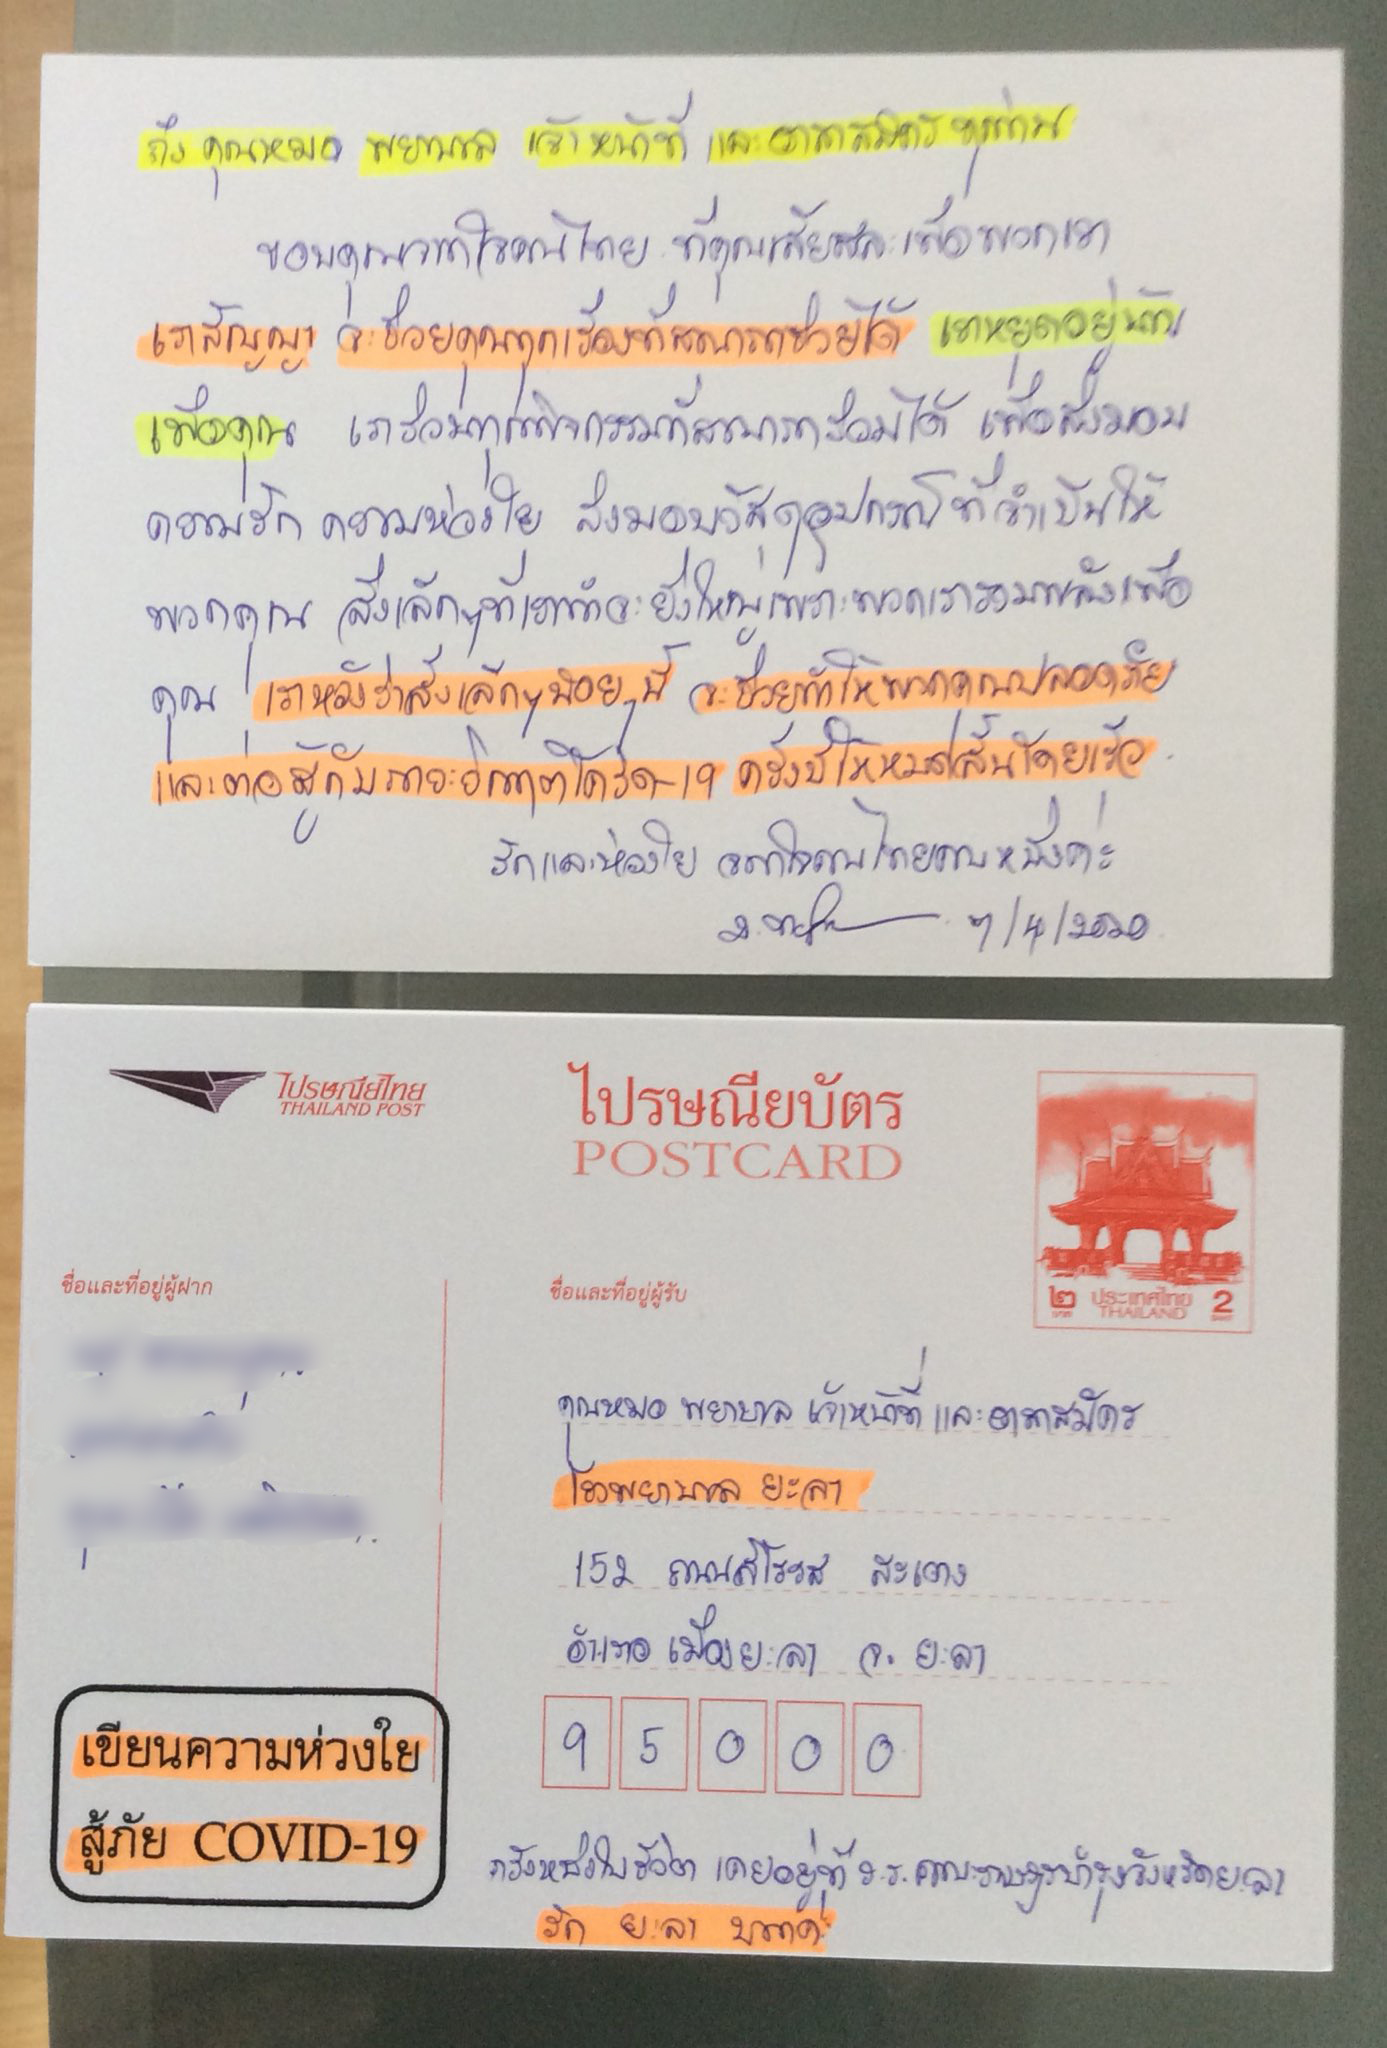 ถึง คุณหมอ พยาบาล เจ้าหน้าที่ และอาสาสมัคร ทุกท่าน
ขอบคุณจากใจคนไทย ที่คุณเสียสละเพื่อพวกเรา
เราสัญญา จะช่วยคุณทุกเรื่องที่สามารถช่วยได้ เราหยุดอยู่บ้าน
เพื่อคุณ เราร่วมทุกกิจกรรมที่สามารถร่วมได้ เพื่อส่งมอบ
ความรัก ความห่วงใย ส่งมอบวัสดุอุปกรณ์ที่จำเป็นให้
พวกคุณ สิ่งเล็กๆที่เราทำจะยิ่งใหญ่เพราะพวกเรารวมพลังเพื่อ
คุณ เราหวังว่าสิ่งเล็กๆน้อยๆนี้ จะช่วยทำให้พวกคุณปลอดภัย
และต่อสู้กับภาวะวิกฤตโควิด-19 ครั้งนี้ให้หมดสิ้นโดยเร็ว
รักและห่วงใย จากใจคนไทยคนหนึ่งค่ะ
7/4/2020
ไปรษณีย์ไทย
THAILAND POST
ไปรษณียบัตร
POSTCARD
๒ บาท ประเทศไทย THAILAND 2 BAHT
ชื่อและที่อยู่ผู้ฝาก
ชื่อและที่อยู่ผู้รับ
คุณหมอ พยาบาล เจ้าหน้าที่ และอาสาสมัคร
โรงพยาบาล ยะลา
152 ถนนสิโรรส สะเตง
อำเภอ เมืองยะลา จ. ยะลา
95000
เขียนความห่วงใย
สู้ภัย COVID-19
ครั้งหนึ่งในชีวิต เคยอยู่ที่ ร.ร. คณะราษฎรบำรุงจังหวัดยะลา
รัก ยะลา มากค่ะ